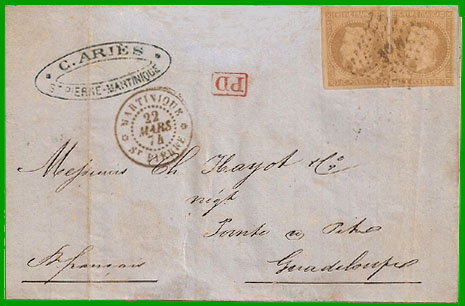 C. ARIÈS
ST PIERRE-MARTINIQUE
PD
MARTINIQUE
22
MARS
74
ST PIERRE
Messieurs Ch Hayot & Co
négts
Pointe à Pitre
St français
Guadeloupe